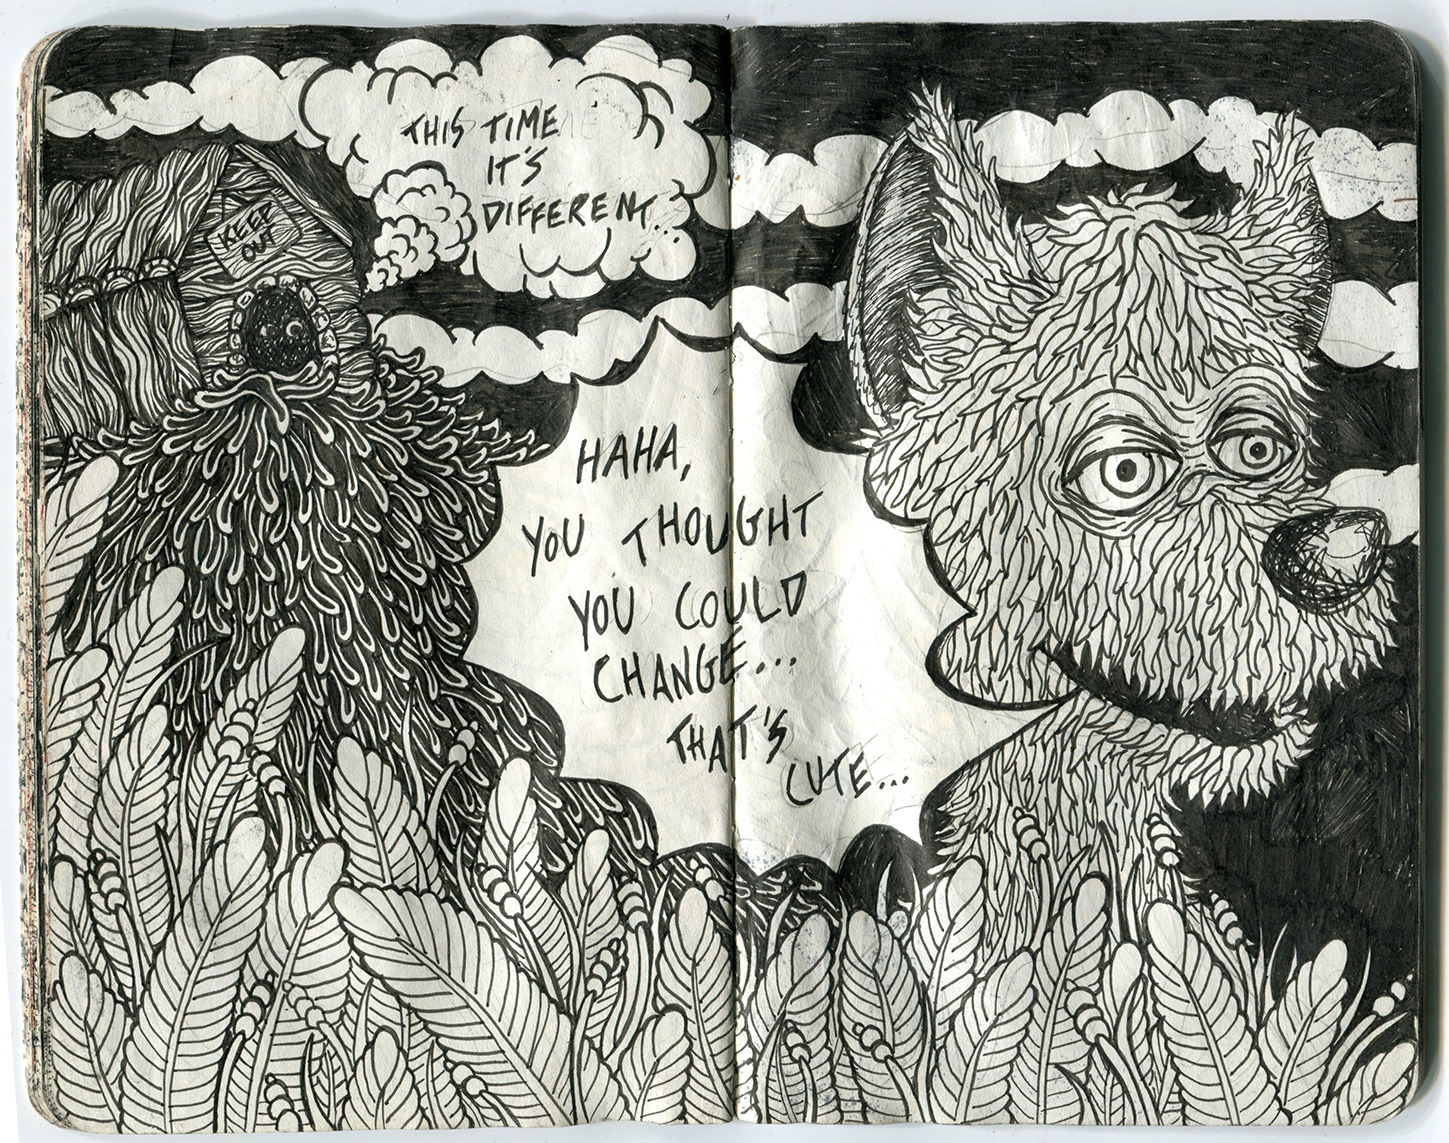 THIS TIME
IT'S
DIFFERENT...
KEEP
OUT
HAHA,
YOU THOUGHT
YOU COULD
CHANGE...
THAT'S
CUTE...